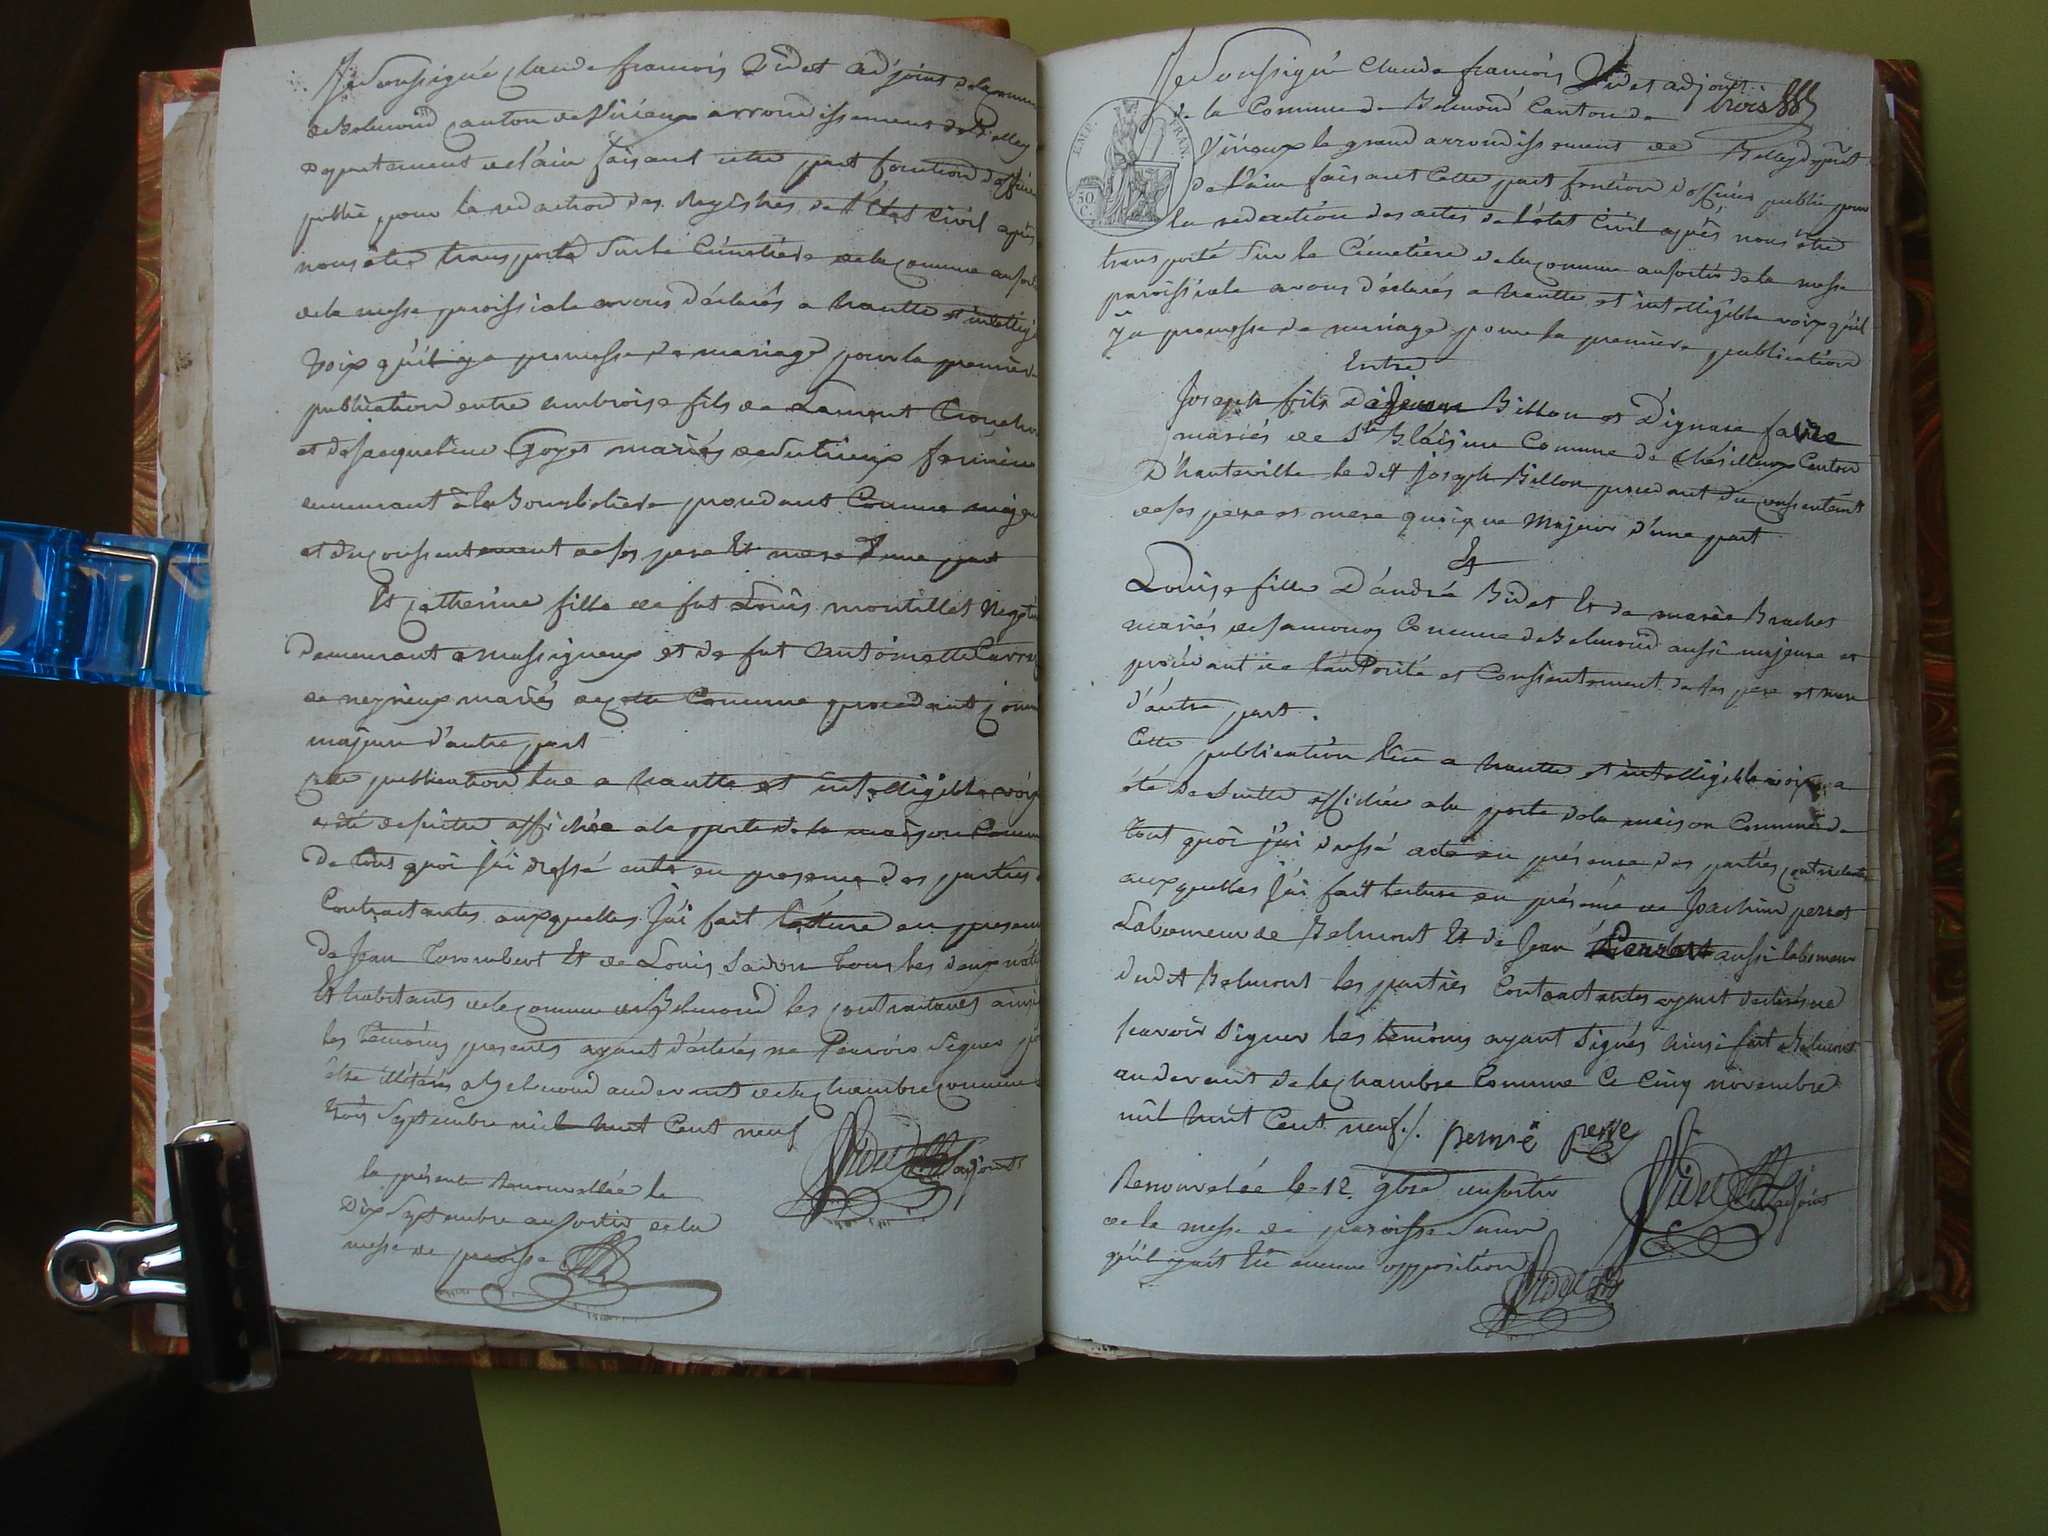 Je Soussigné Claude françois Videt adjoint de la commune
de Belmond Canton de Virieux arrondissement de Belley
Departement de l'ain faisant cette part fonction d'officier
public pour la redaction des Registres de l'état civil après
nous être transporté Sur le Cimetière de la Commune au sortir
de la messe paroissiale avons déclarés a hautte et intelligible
voix qu'il y a promesse de mariage pour la première
publication entre ambroise fils de Laurent
et de jacqueline Goyet mariés
demeurant à la procedant Comme majeur
et du consentement de ses pere et mere d'une part
Et Catherine fille de fut Louis montillet
Demeurant a massigneux et de fut antoinette
de neyrieux mariés de cette Commune procedant comme
majeure d'autre part
Cette publication lue a hautte et intelligible voix
a été de suitte affichée a la porte de la maison Commune
De tout quoi j'ai dressé acte en presence des parties
Contractantes auxquelles j'ai fait lecture en presence
De Jean Torombert Et de Louis tous les deux
Et habitants de la Commune de Belmond les contractants ainsi
les témoins presents ayant déclarés ne Scavoir Signer pour
être illétérés a Belmond au devant de la chambre commune
trois Septembre mil huit Cent neuf
Videt adjoint
la présente renouvellée le
Dix Septembre au sortir de la
messe de paroisse
Je Soussigné Claude françois Videt adjoint
trois
de la Commune de Belmond Canton de
Virieux le grand arrondissement de Belley dépt
EMP. FRAN.
50 C.
De l'ain faisant Cette part fontion d'officier public pour
la redaction des actes de l'état Civil après nous être
transporté Sur le Cémetière de la Commune au sortir de la messe
paroissiale avons déclarés a hautte et intelligible voix qu'il
y a promesse de mariage pour la première publication
Entre
Joseph fils De Jean Billon et D'ignare favre
mariés de Ste Blaisine Commune de Chésilleux Canton
D'hauteville le dit Joseph Billon procedant du consentemt
de ses pere et mere quoique Majeur d'une part
Et
Louise fille D'andré Bidet Et de marie Brachet
mariés de Samonod Commune de Belmond aussi majeure et
procedant de l'autorité et Consentement de ses pere et mere
d'autre part.
Cette publication lûe a hautte et intelligible voix a
été de Suitte affichée a la porte de la maison Commune de
tout quoi j'ai dressé acte en présence des parties contractantes
auxquelles j'ai fait lecture en présence de Joachim perret
Laboureur de Belmont Et de Jean aussi laboureur
dudit Belmont les parties Contractantes ayant déclarés ne
scavoir Signer les témoins ayant Signés ainsi fait a Belmont
au devant de la chambre Commune Ce Cinq novembre
mil huit Cent neuf./.
Videt adjoint
Renouvelée le 12. 9bre au sortir
de la messe de paroisse Sans
qu'il y ait Eû aucune opposition
Videt